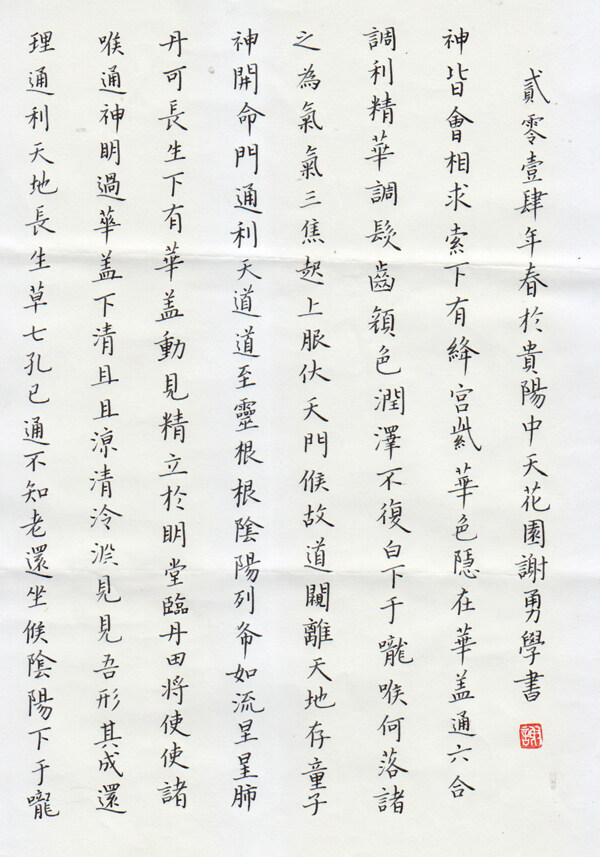 理通利天地長生草七孔已通不知老還坐候陰陽下于嚨
喉通神明過華盖下清且且涼清泠淵見見吾形其成還
丹可長生下有華盖動見精立於明堂臨丹田将使使諸
神開命門通利天道道至靈根根陰陽列布如流星星肺
之為氣氣三焦起上服伏天門候故道闚離天地存童子
調利精華調髮齒顏色潤澤不復白下于嚨喉何落諸
神皆會相求索下有絳宮紫華色隱在華盖通六合
貳零壹肆年春於貴陽中天花園謝勇學書
謝